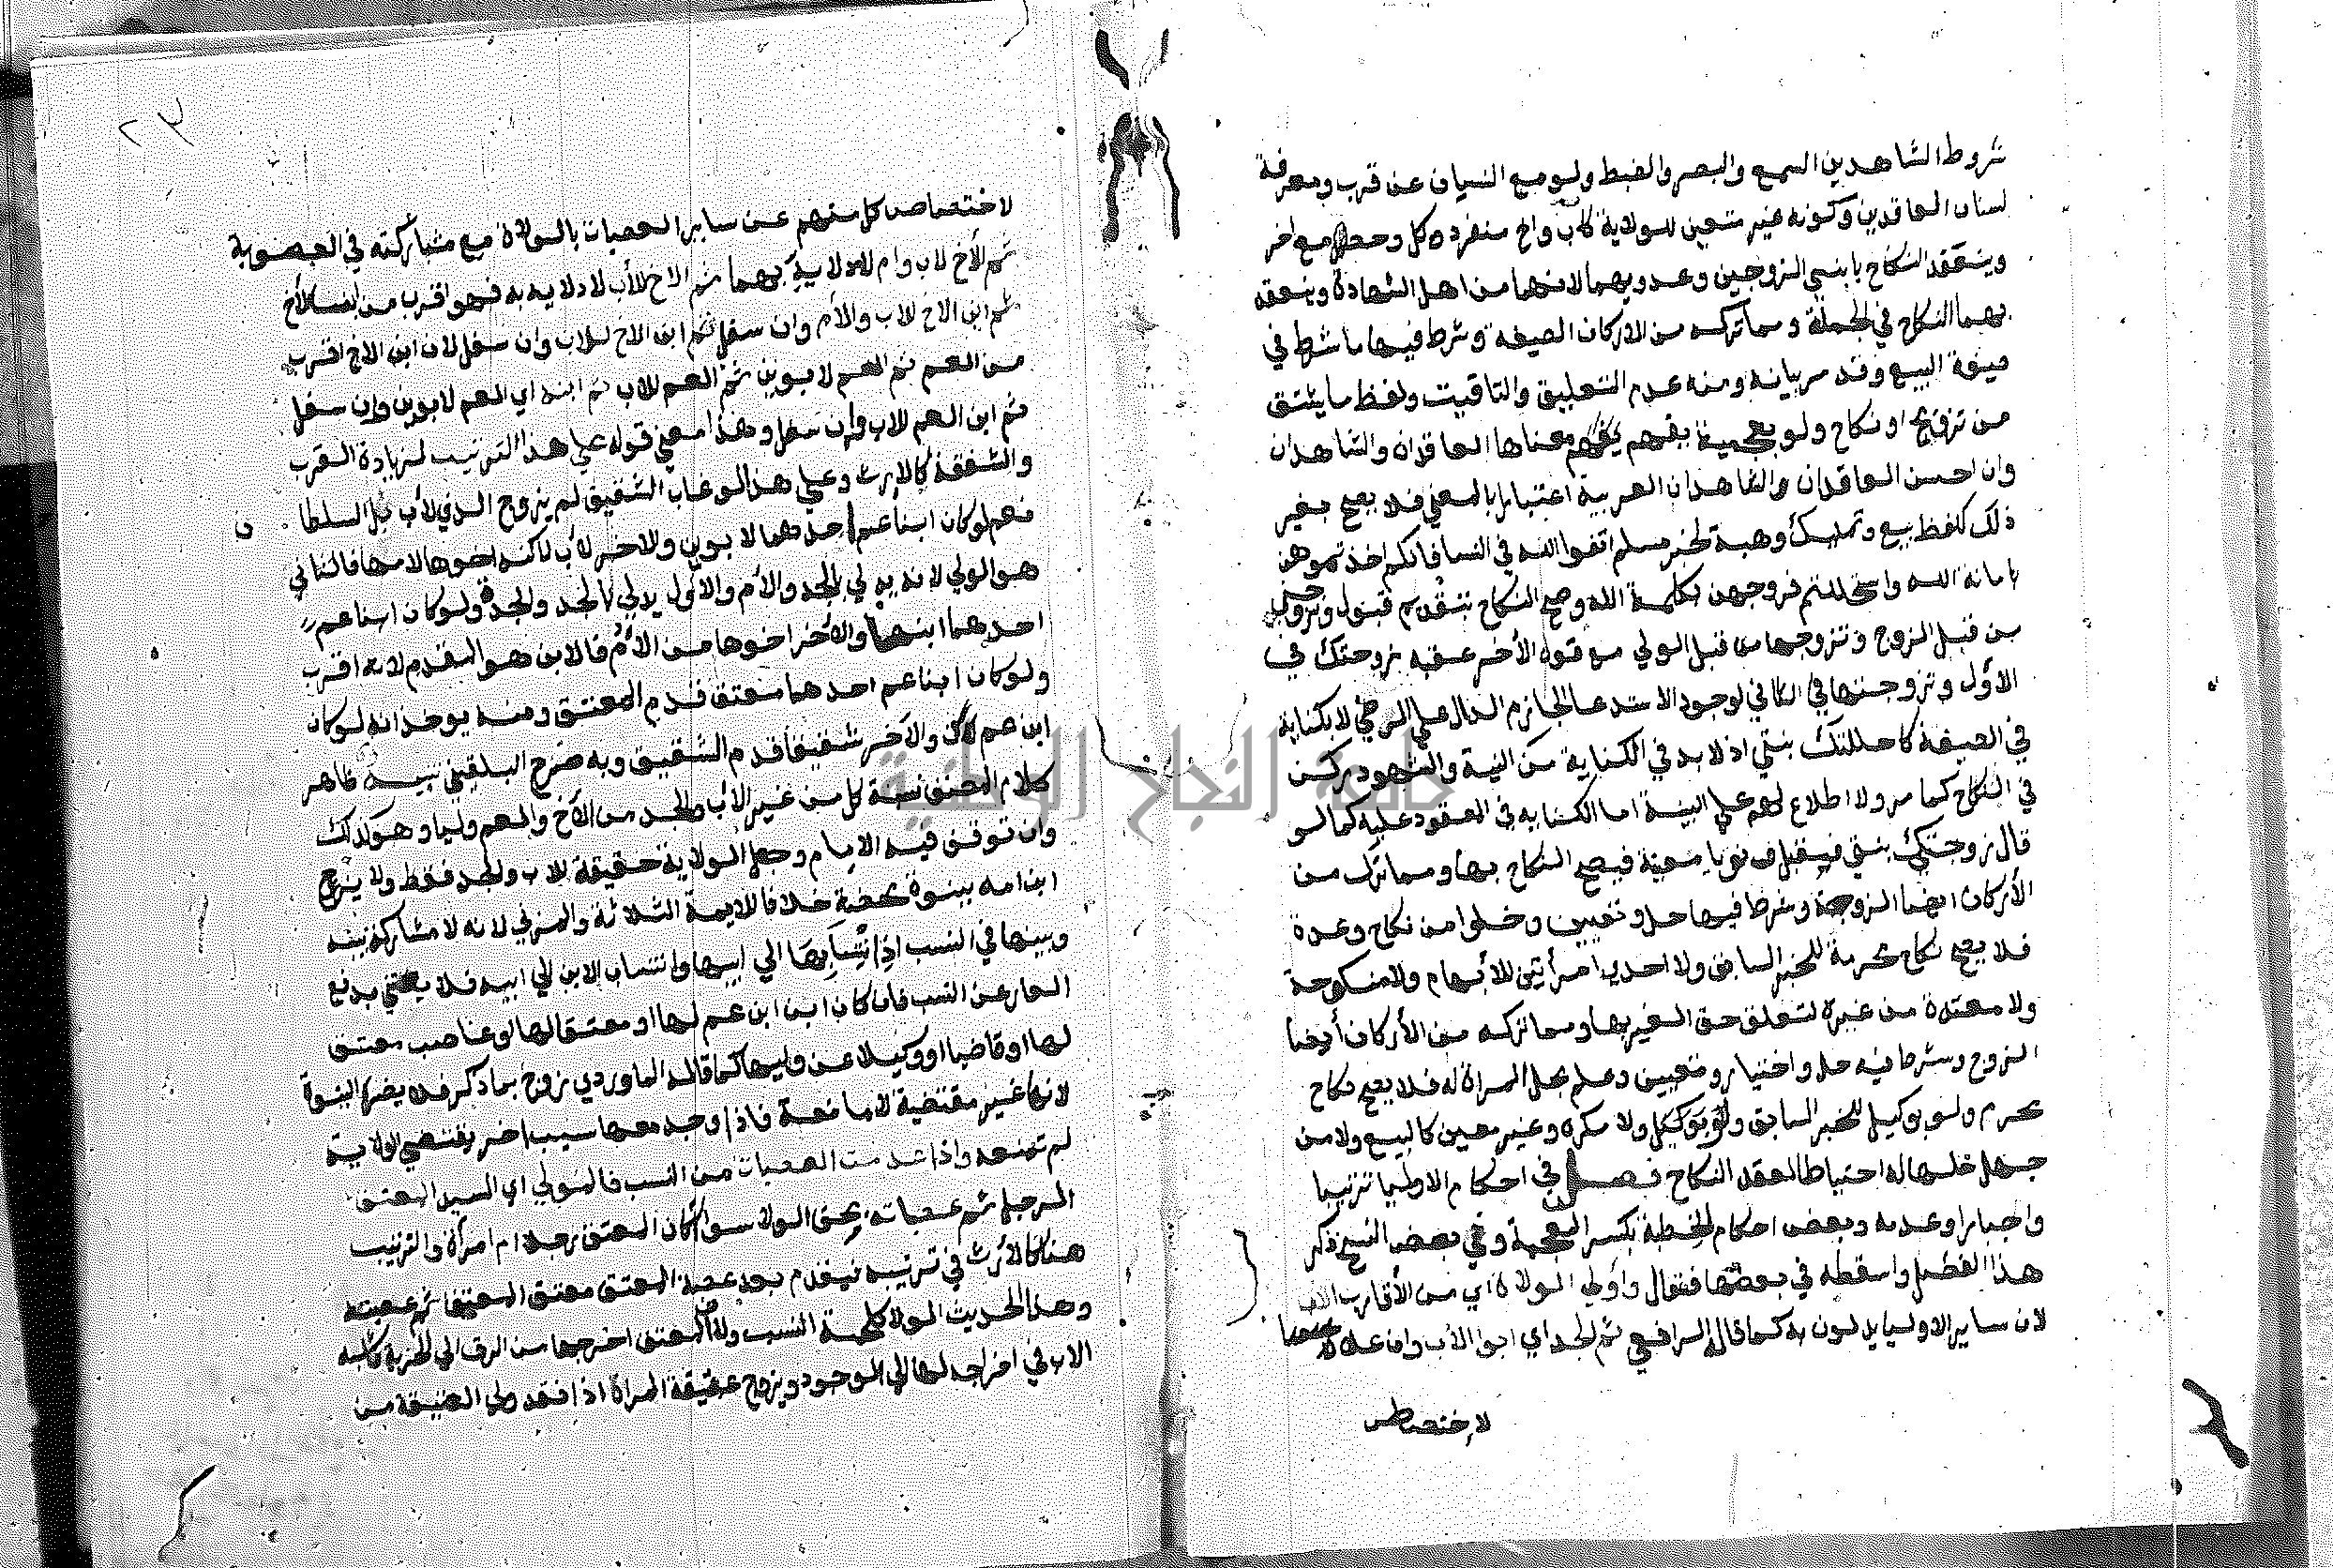 شروط الشاهدين السمع والبصر والضبط ولو مع النسيان عن قرب ومعرفة
لسان العاقدين وكونه غير متعين للولاية كاب واخ منفرد وكل وحضر مع اخر
وينعقد النكاح بابني الزوجين وعدويهما لانهما من اهل الشهادة وينعقد
بهما النكاح في الجملة ومما تركه من الاركان الصيغة وشرط فيها ما شرط في
صيغة البيع وقد مر بيانه ومنه عدم التعليق والتاقيت ولفظ ما يشتق
من تزويج او نكاح ولو بعجمية يفهم معناها العاقدان والشاهدان
وان احسن العاقدان والشاهدان العربية اعتبارا بالمعني فلا يصح بغير
ذلك كلفظ بيع وتمليك وهبة لخبر مسلم اتقوا الله في النسا فانكم اخذتموهن
بامانة الله واستحللتم فروجهن بكلمة الله وصح النكاح بتقدم قبول وبزوجني
من قبل الزوج وتزوجها من قبل الولي مع قول الأخر عقبه زوجتك في
الأول وتزوجتها في الثاني لوجود الاستدعا الجازم الدال علي الرضي لا بكناية
في الصيغة كاحللتك بنتي اذ لا بد في الكناية من النية والشهود ركن
في النكاح كما مر ولا اطلاع لهم علي النية اما الكنايه في المعقود عليه كما لو
قال زوجتك بنتي فقبل ونويا معينة فيصح النكاح بها ومما تركه من
الأركان ايضا الزوجة وشرط فيها حل وتعيين وخلوا من نكاح وعدة
فلا يصح نكاح محرمة للخبر السابق ولا احدي امرأتين للابهام ولا منكوحة
ولا معتدة من غيره لتعلق حق الغير بها ومما تركه من الأركان أيضا
الزوج وشرط فيه حل واختيار وتعيين وعلم بحل المراة له فلا يصح نكاح
محرم ولو بوكيل للخبر السابق ولا مكره وغير معين كالبيع ولا من
جهل حلها له احتياطا لعقد النكاح فصل في احكام الاوليا ترتيبا
واجبارا وعدمه وبعض احكام الخطبة بكسر المعجمة وفي بعض النسخ ذكر
هذا الفصل واسقطه في بعضها فقال واولي الولاة اي من الأقارب الاب
لان ساير الاوليا يدلون به كما قاله الرافعي ثم الجد اي ابو الأب وان علا
لاختصاص
٢٣
لاختصاص كل منهم عن ساير العصبات بالولادة مع مشاركته في العصوبة
ثم للأخ لاب وام للادلا بهما ثم الاخ للأب لادلايه به فهو اقرب من ابن الأخ
ثم ابن الاخ للاب والأم وان سفل ثم ابن الاخ للاب وان سفل لان ابن الاخ اقرب
من العم ثم العم لابوين ثم العم للاب ثم ابنه اي العم لابوين وان سفل
ثم ابن العم للاب وان سفل وهذا معني قوله علي هذا الترتيب لزيادة القرب
والشفقة كالارث وعلي هذا لو غاب الشقيق لم يزوج الذي لأب بل السلطان
نعم لو كان ابنا عم احدهما لابوين والاخر لأب لاكنه اخوها لامها فالثاني
هو الولي لانه يدلي بالجد والأم والأول يدلي بالجد والجدة ولو كان ابنا عم
احدهما ابنها والاخر اخوها من الأم فالابن هو المقدم لانه اقرب
ولو كان ابنا عم احدهما معتق قدم المعتق ومنه يوخذ انه لو كان
ابن عم لأب والآخر شقيقا قدم الشقيق وبه صرح البلقيني تنبيه ظاهر
كلام المصنف تسمية كل من غير الأب والجد من الأخ والعم وليا وهو كذلك
وان توقف فيه الامام وجعل الولاية حقيقة للاب والجد فقط ولا يزوج
ابن امه ببنوة محضة خلافا للايمة الثلاثة والمزني لانه لا مشاركة بينه
وبينها في النسب اذ انتسابها الي ابيها وانتساب الابن الي ابيه فلا يعتني بدفع
العار عن النسب فان كان ابن ابن عم لها او معتقا لها او عاصب معتق
لها او قاضيا او وكيلا عن وليها كما قاله الماوردي زوج بما ذكر فلا يضره البنوة
لانها غير مقتضية لا مانعة فاذا وجد معها سبب اخر يقتضي الولاية
لم تمنعه واذا عدمت العصبات من النسب فالمولي اي السيد المعتق
الرجل ثم عصباته بحق الولا سوا كان المعتق رجلا ام امرأة والترتيب
هنا كالأرث في ترتيبه فيقدم بعد عصبة المعتق معتق المعتق ثم عصبته
وهذا لحديث الولا لحمة كلحمة النسب ولان المعتق اخرجها من الرق الي الحرية فاشبه
الاب في اخراجه لها الي الوجود ويزوج عتيقة المراة اذا فقد ولي العتيقة من
جامعة النجاح الوطنية